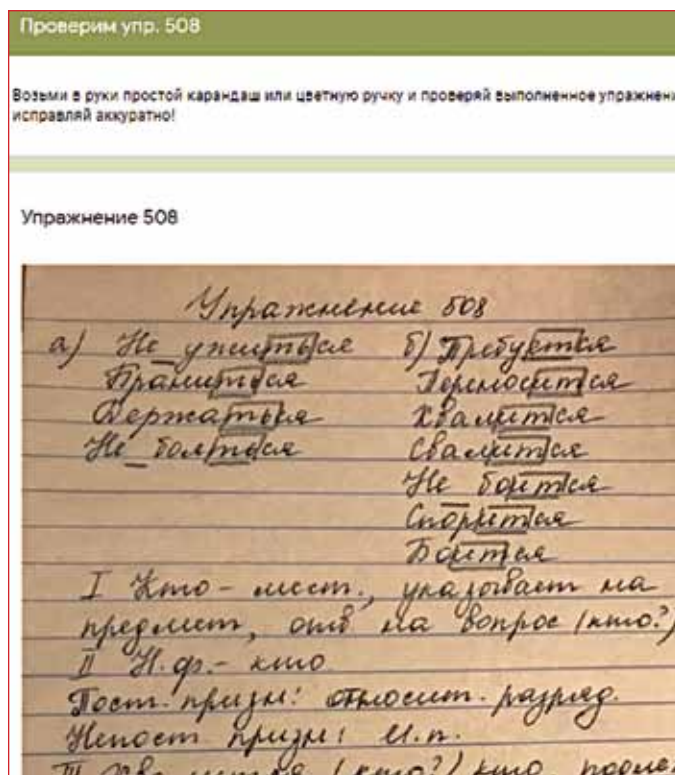 Проверим упр. 508
Возьми в руки простой карандаш или цветную ручку и проверяй выполненное упражнени
исправляй аккуратно!
Упражнение 508
Упражнение 508
а) Не ужиться б) Требуется
Браниться Переносится
Держаться Хвалится
Не бояться Свалится
Не боится
Спорится
Боится
I Кто - мест., указывает на
предмет, отв на вопрос (кто?)
II Н.ф. - кто
Пост. призн: относит. разряд.
Непост призн: И.п.
III (кто?) кто